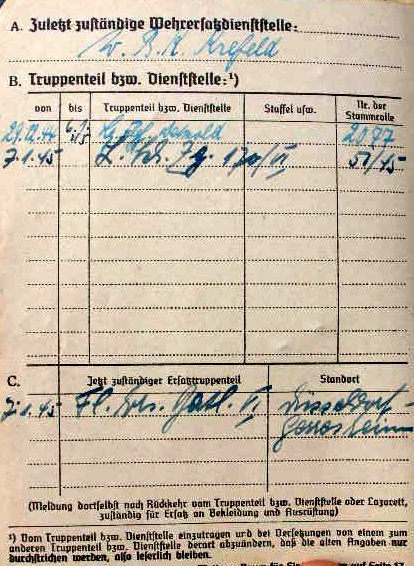 A. Zuletzt zuständige Wehrersatzdienststelle:
W. B. K. Krefeld
B. Truppenteil bzw. Dienststelle:¹)
von bis Truppenteil bzw. Dienststelle Staffel usw. Nr. der Stammrolle
2087
7.1.45 170/VI 51/45
C. Jetzt zuständiger Ersatztruppenteil Standort
7.1.45 Fl. Ers. Batl. VI Düsseldorf-
Gerresheim
(Meldung dortselbst nach Rückkehr vom Truppenteil bzw. Dienststelle oder Lazarett,
zuständig für Ersatz an Bekleidung und Ausrüstung)
¹) Vom Truppenteil bzw. Dienststelle einzutragen und bei Versetzungen von einem zum
anderen Truppenteil bzw. Dienststelle derart abzuändern, daß die alten Angaben nur
durchstrichen werden, also leserlich bleiben.
auf Seite 17